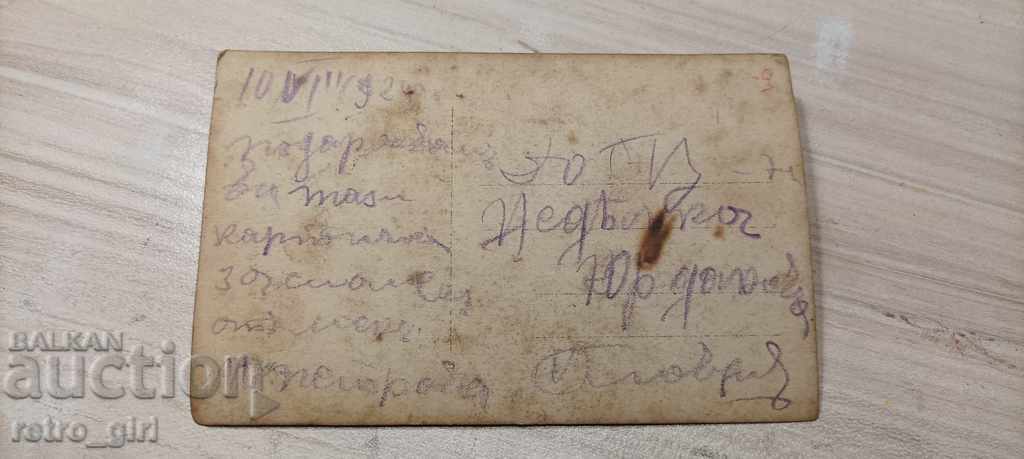 10 VIII 192
подарявамъ
ви тази
картичка
за спомен
отъ мене.
До Г-ца
Недѣлка
Юрданова
Пловдивъ
-9
BALKAN
auction
retro_girl